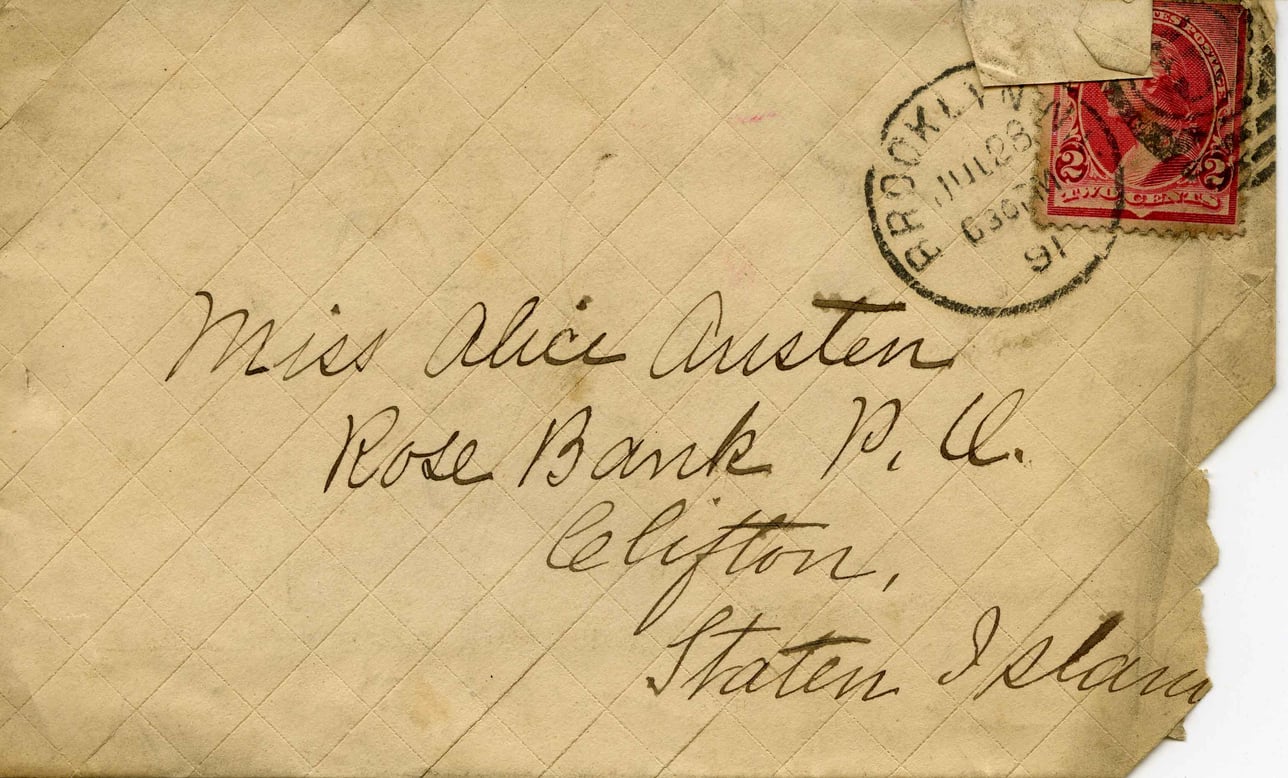 BROOKLYN N.Y.
JUL 28
630 PM
91
ES POSTAGE
2 2
TWO CENTS
Miss Alice Austen
Rose Bank P. O.
Clifton,
Staten Islan